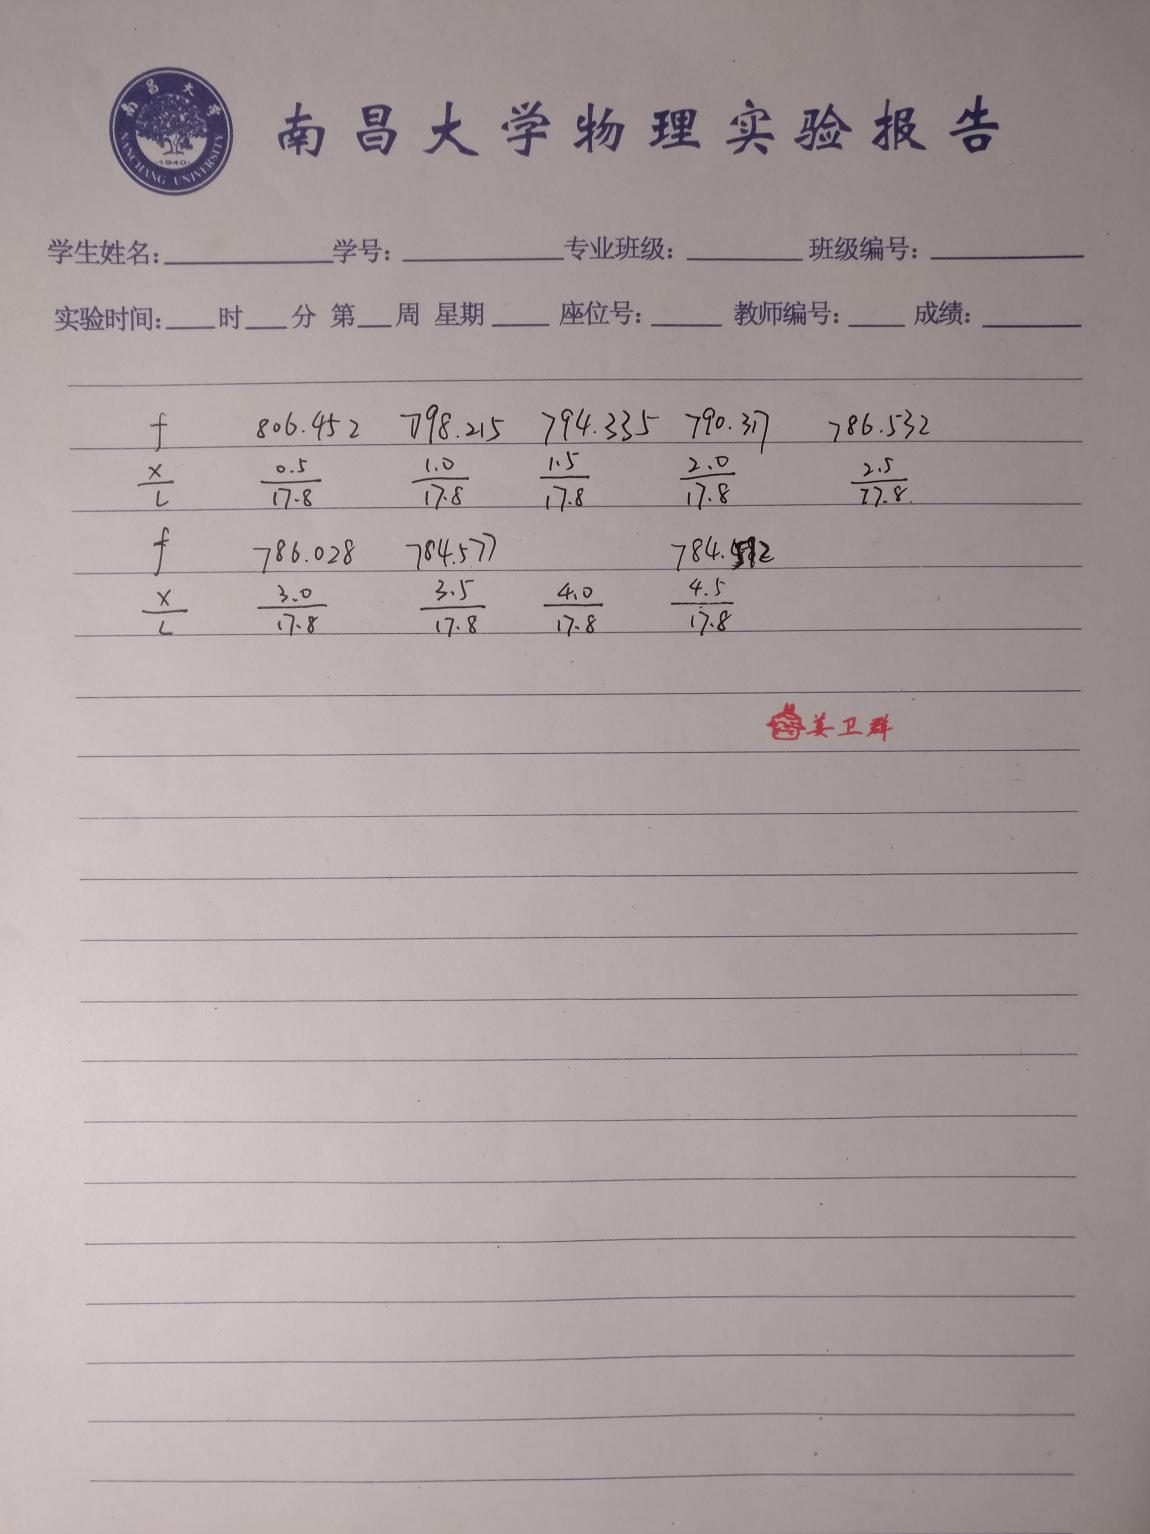 南昌大学
NANCHANG UNIVERSITY
·1940·
南昌大学物理实验报告
学生姓名:________学号:________专业班级:________班级编号:________
实验时间:___时___分 第___周 星期____ 座位号:____ 教师编号:____ 成绩:____
f 806.452 798.215 794.335 790.317 786.532
x/L 0.5/17.8 1.0/17.8 1.5/17.8 2.0/17.8 2.5/17.8
f 786.028 784.577
x/L 3.0/17.8 3.5/17.8 4.0/17.8 4.5/17.8
姜卫群